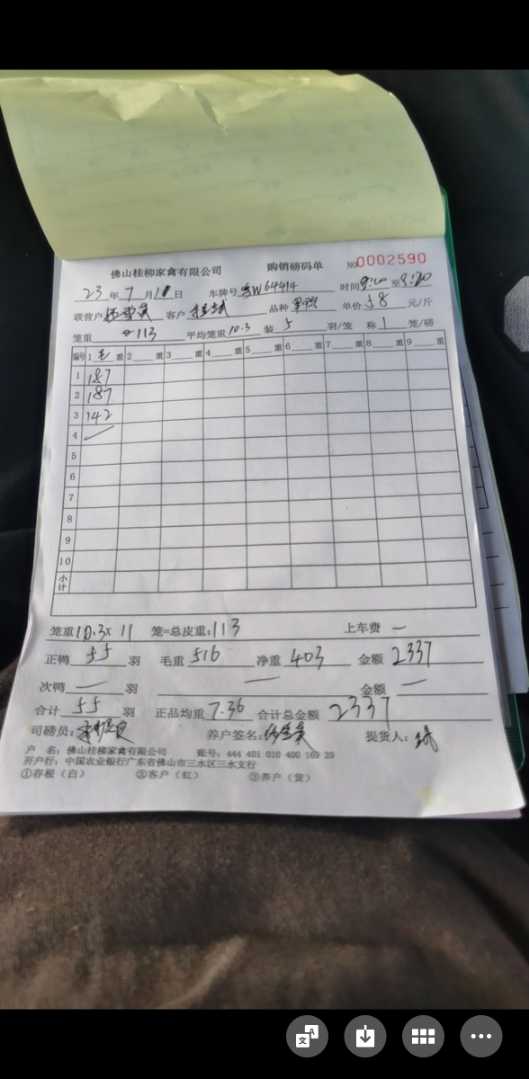 佛山桂柳家禽有限公司 购销磅码单 №0002590
23 年 7 月 日 车牌号 粤W64414 时间 9:00 至 9:20
联营户 客户 品种 单价 5.8 元/斤
笼重 113 平均笼重 10.3 装 5 羽/笼 称 1 笼/磅
编号 1 毛 重 2 重 3 重 4 重 5 重 6 重 7 重 8 重 9 重
1 187
2 187
3 142
4
5
6
7
8
9
10
小计
笼重 10.3x 11 笼=总皮重: 113 上车费 一
正鸭 55 羽 毛重 516 净重 403 金额 2337
次鸭 一 羽 一 金额 一
合计 55 羽 正品均重 7.36 合计总金额 2337
司磅员: 养户签名: 提货人:
户 名: 佛山桂柳家禽有限公司 账号: 444 401 010 400 169 29
开户行: 中国农业银行广东省佛山市三水区三水支行
①存根（白） ②客户（红） ③养户（黄）